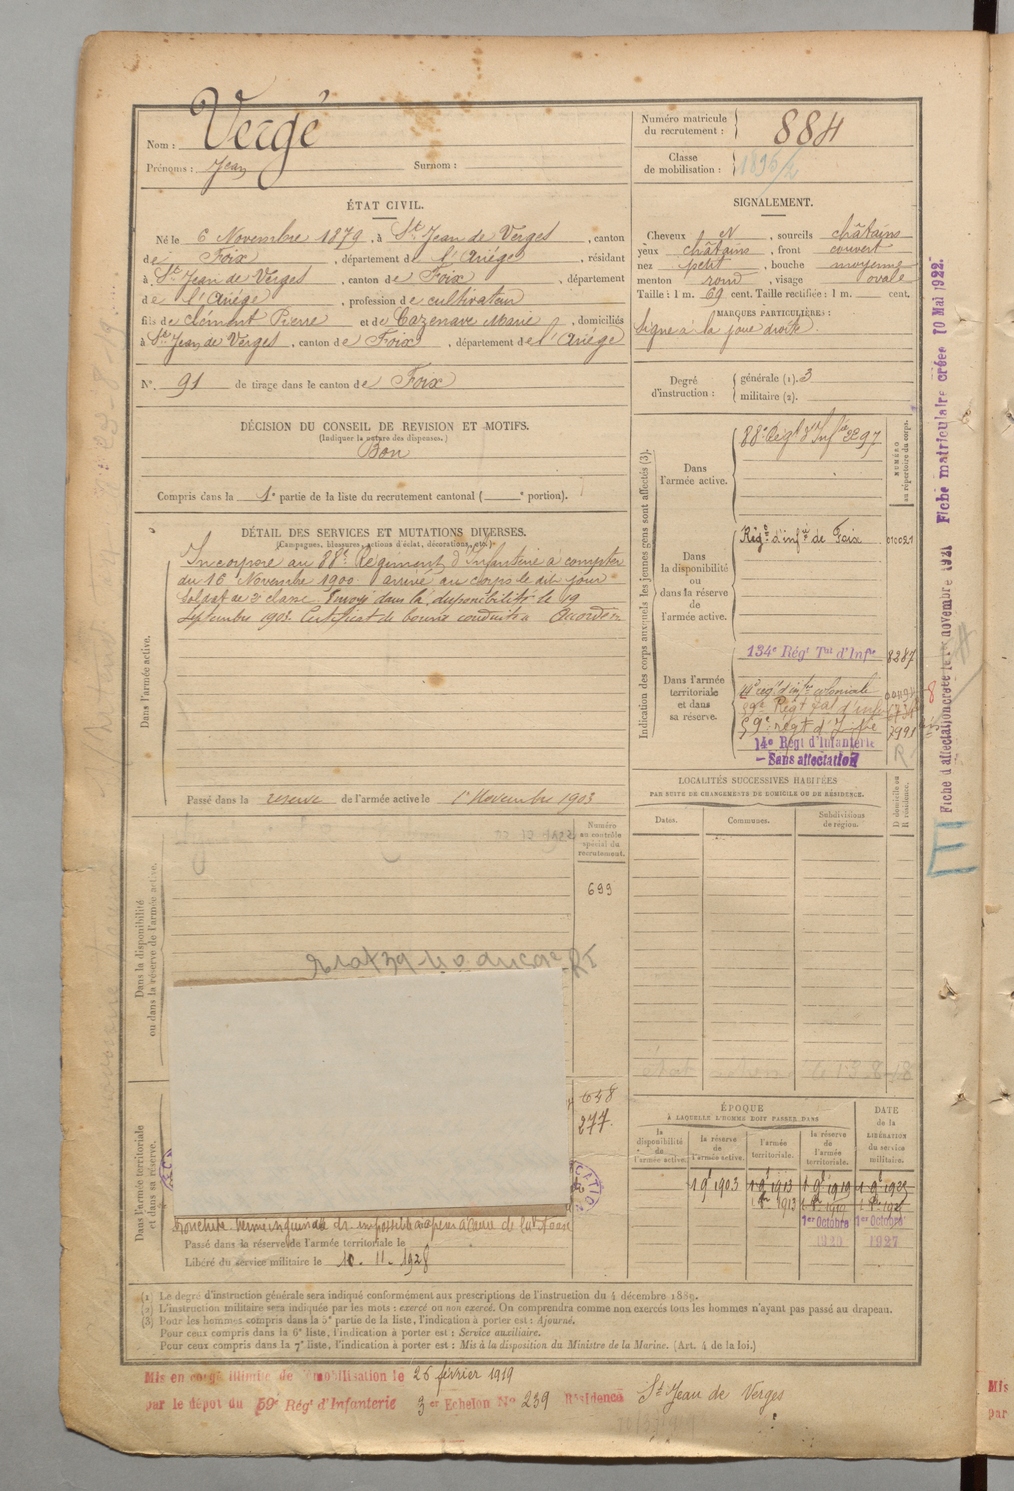 Nom : Vergé
Prénoms : Jean Surnom :
Numéro matricule du recrutement : 884
Classe de mobilisation : 1896/2
ÉTAT CIVIL.
Né le 6 Novembre 1879, à St Jean de Verges, canton
de Foix, département de l'Ariège, résidant
à St Jean de Verges, canton de Foix, département
de l'Ariège, profession de cultivateur
fils de Clément Pierre et de Cazenave Marie, domiciliés
à St Jean de Verges, canton de Foix, département de l'Ariège
N°. 91 de tirage dans le canton de Foix
SIGNALEMENT.
Cheveux et, sourcils châtains
yeux châtains, front couvert
nez petit, bouche moyenne
menton rond, visage ovale
Taille : 1 m. 69 cent. Taille rectifiée : 1 m. cent.
MARQUES PARTICULIÈRES :
Signe à la joue droite.
Degré d'instruction : générale (1). 3
militaire (2).
DÉCISION DU CONSEIL DE REVISION ET MOTIFS.
(Indiquer la nature des dispenses.)
Bon
Compris dans la 1e partie de la liste du recrutement cantonal ( e portion).
DÉTAIL DES SERVICES ET MUTATIONS DIVERSES.
(Campagnes, blessures, actions d'éclat, décorations, etc.)
Dans l'armée active.
Incorporé au 88e Régiment d'Infanterie à compter
du 16 Novembre 1900. arrivé au corps le dit jour
Soldat de 2e classe. Envoyé dans la disponibilité le 19
Septembre 1903. Certificat de bonne conduite Accordé
Passé dans la réserve de l'armée active le 1er Novembre 1903
Indication des corps auxquels les jeunes gens sont affectés (3).
NUMÉRO au répertoire du corps.
Dans l'armée active.
88e Régt d'Infie 2297
Dans la disponibilité ou dans la réserve de l'armée active.
Régt d'infie de Foix
Dans l'armée territoriale et dans sa réserve.
134e Régt Tal d'Infie 8287
régt d'infie coloniale
59e Régt tal d'infie
59e régt d'Infie 7991
14e Régt d'Infanterie
Sans affectation
R
LOCALITÉS SUCCESSIVES HABITÉES
PAR SUITE DE CHANGEMENTS DE DOMICILE OU DE RÉSIDENCE.
Dates. Communes. Subdivisions de région. D domicile ou R résidence.
Dans la disponibilité ou dans la réserve de l'armée active.
Numéro au contrôle spécial du recrutement.
699
Dans l'armée territoriale et dans sa réserve.
648
277.
ÉPOQUE
À LAQUELLE L'HOMME DOIT PASSER DANS
la disponibilité de l'armée active. la réserve de l'armée active. l'armée territoriale. la réserve de l'armée territoriale. DATE de la LIBÉRATION du service militaire.
1 9bre 1903 1 9bre 1913 1 9bre 1919 1 9bre 1925
1er Octobre 1er Octobre
1920 1927
Passé dans la réserve de l'armée territoriale le
Libéré du service militaire le 10. 11. 1928
(1) Le degré d'instruction générale sera indiqué conformément aux prescriptions de l'instruction du 4 décembre 1889.
(2) L'instruction militaire sera indiquée par les mots : exercé ou non exercé. On comprendra comme non exercés tous les hommes n'ayant pas passé au drapeau.
(3) Pour les hommes compris dans la 5e partie de la liste, l'indication à porter est : Ajourné.
Pour ceux compris dans la 6e liste, l'indication à porter est : Service auxiliaire.
Pour ceux compris dans la 7e liste, l'indication à porter est : Mis à la disposition du Ministre de la Marine. (Art. 4 de la loi.)
Mis en congé illimité de démobilisation le 26 février 1919
par le dépot du 59e Régt d'Infanterie 3er Echelon No 239 Résidence St Jean de Verges
Fiche d'affectation créée le novembre 1921 Fiche matriculaire créée 10 Mai 1922.
E
Mis
par